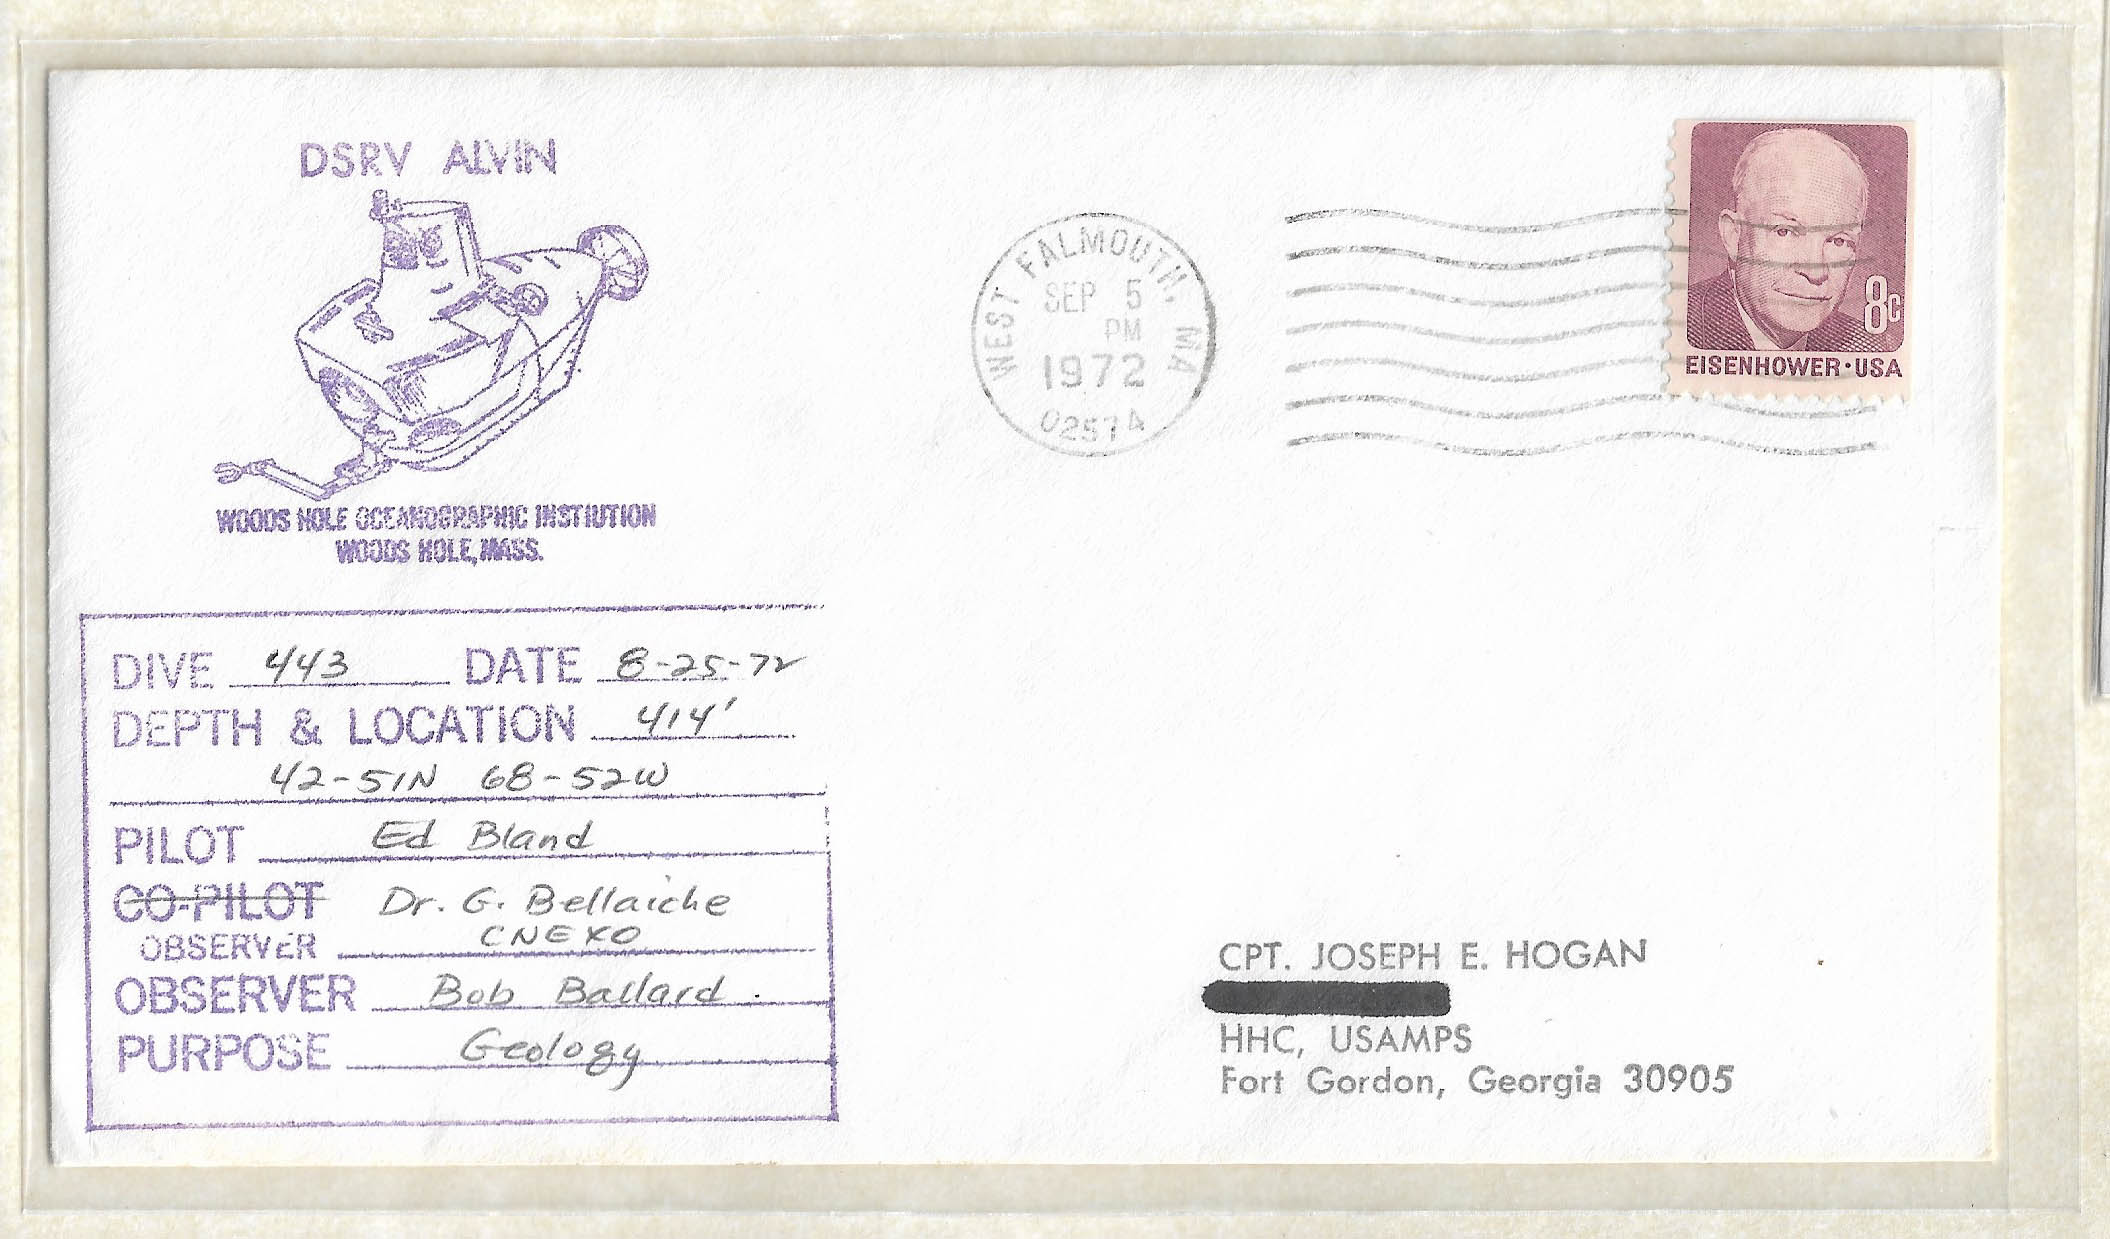 DSRV ALVIN
WOODS HOLE OCEANOGRAPHIC INSTIUTION
WOODS HOLE, MASS.
WEST FALMOUTH, MA
SEP 5
PM
1972
02574
8c
EISENHOWER · USA
DIVE 443 DATE 8-25-72
DEPTH & LOCATION 414'
42-51N 68-52W
PILOT Ed Bland
CO-PILOT Dr. G. Bellaiche
OBSERVER CNEXO
OBSERVER Bob Ballard.
PURPOSE Geology
CPT. JOSEPH E. HOGAN
HHC, USAMPS
Fort Gordon, Georgia 30905